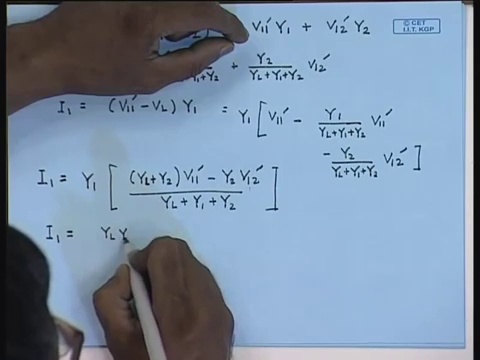 V₁₁′ Y₁ + V₁₂′ Y₂
© CET
I.I.T. KGP
+ Y₂/(Y_L+Y₁+Y₂) V₁₂′
I₁ = (V₁₁′ − V_L) Y₁ = Y₁ [ V₁₁′ − Y₁/(Y_L+Y₁+Y₂) V₁₁′
− Y₂/(Y_L+Y₁+Y₂) V₁₂′ ]
I₁ = Y₁ [ ((Y_L+Y₂) V₁₁′ − Y₂ V₁₂′)/(Y_L + Y₁ + Y₂) ]
I₁ = Y_L Y